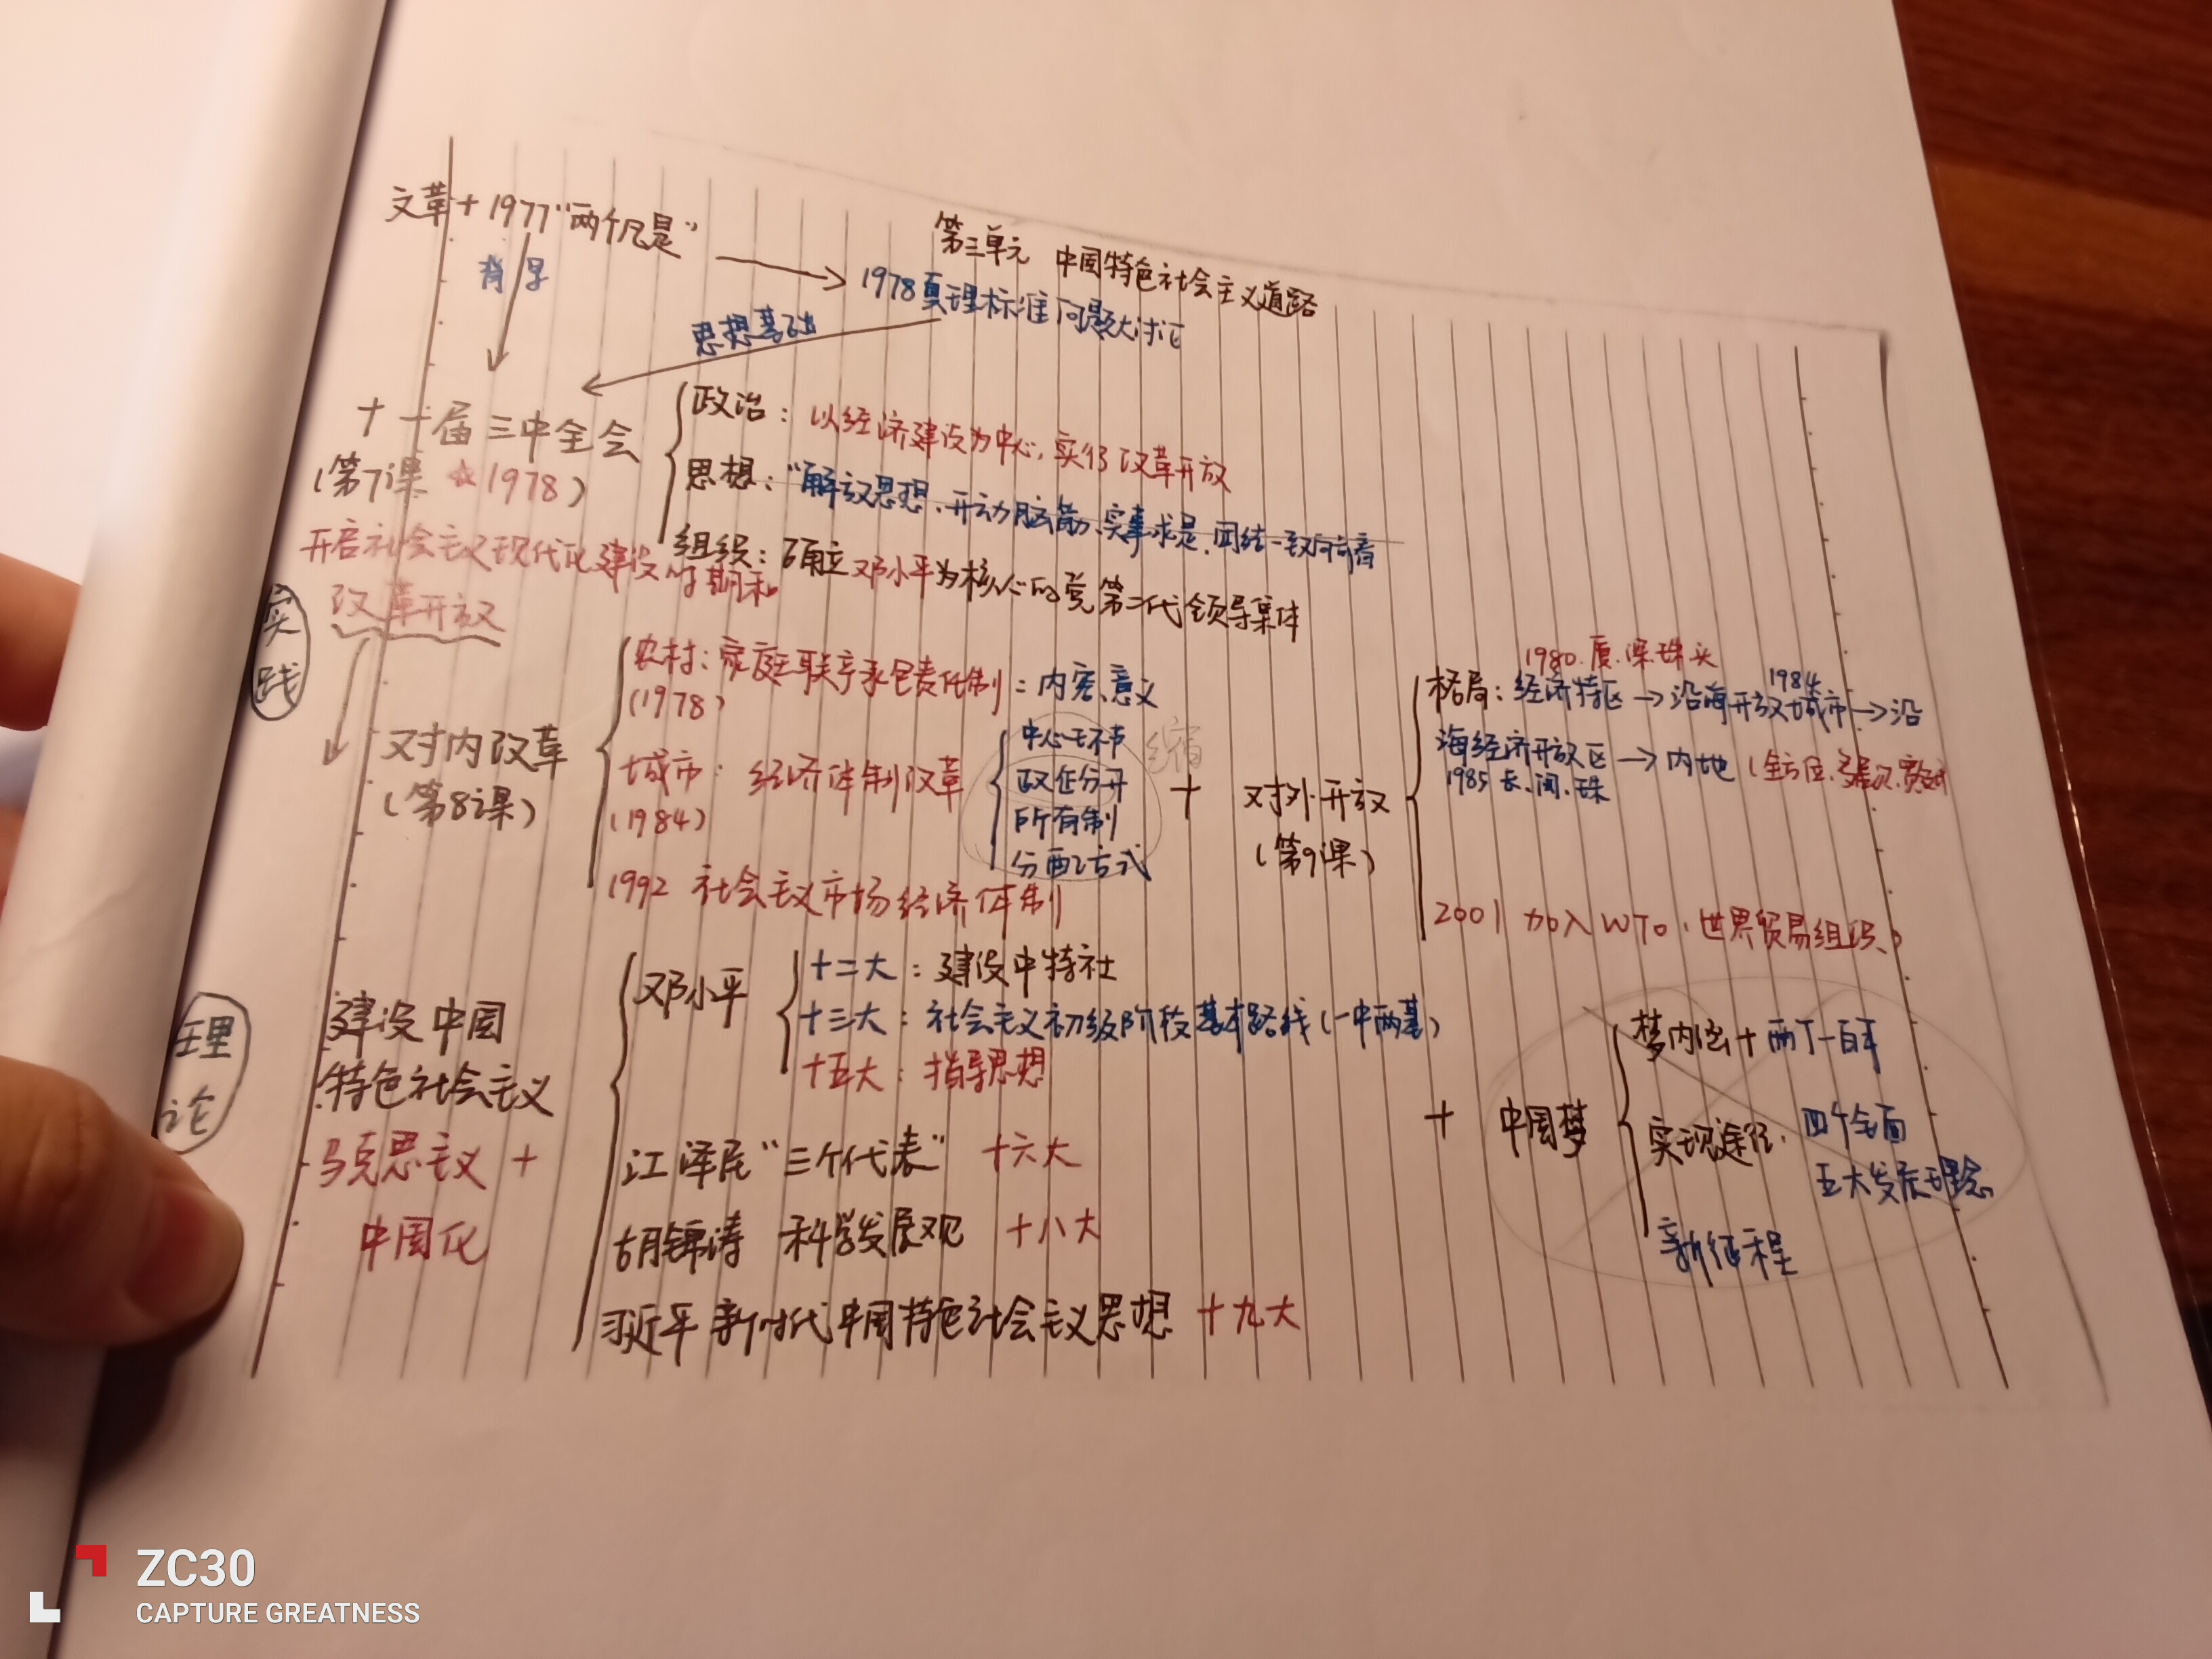 文革+1977"两个凡是"
第三单元 中国特色社会主义道路
背景
1978真理标准问题大讨论
思想基础
十一届三中全会
(第7课 ☆1978)
政治:以经济建设为中心,实行改革开放
思想:"解放思想、开动脑筋、实事求是、团结一致向前看
组织:确立邓小平为核心的党第二代领导集体
开启社会主义现代化建设时期和
改革开放
实践
对内改革
(第8课)
农村:家庭联产承包责任制:内容、意义
(1978)
城市:经济体制改革
(1984)
中心环节
政企分开
所有制
分配方式
缩
1992 社会主义市场经济体制
+ 对外开放
(第9课)
1980.厦.深.珠.汕
1984
格局:经济特区→沿海开放城市→沿
海经济开放区→内地(全方位、多层次、宽领域
1985 长.闽.珠
2001 加入WTO.世界贸易组织.)
理论
建设中国
特色社会主义
马克思主义+
中国化
邓小平
十二大:建设中特社
十三大:社会主义初级阶段基本路线(一中两基)
十五大:指导思想
江泽民"三个代表" 十六大
胡锦涛 科学发展观 十八大
习近平新时代中国特色社会主义思想 十九大
+ 中国梦
梦内涵+两个一百年
实现途径. 四个全面
五大发展理念
新征程
ZC30
CAPTURE GREATNESS